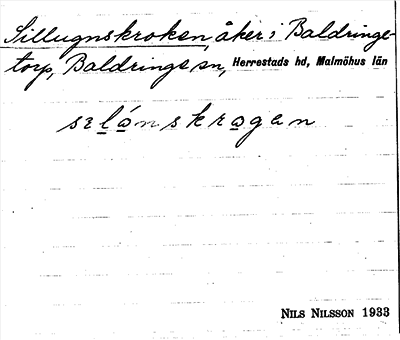 Sillugnskroken, åker, i Baldringe-
torp, Baldringe sn, Herrestads hd, Malmöhus län
sɪlónskrogen
NILS NILSSON 1933